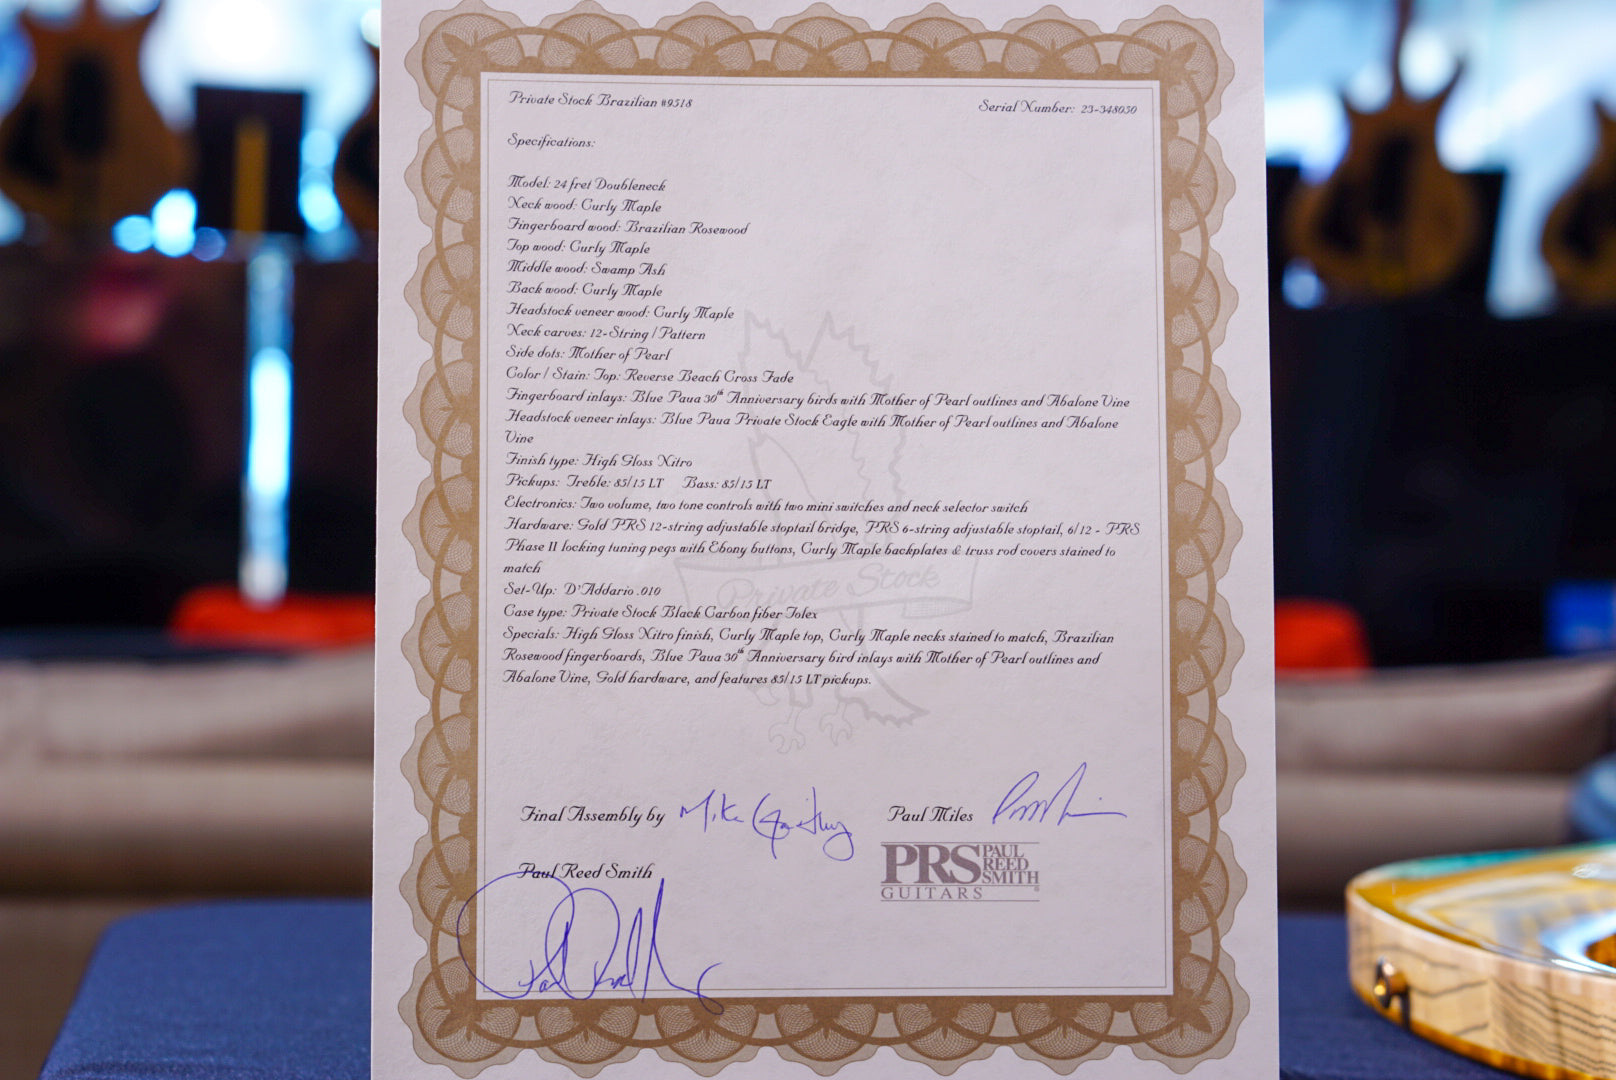 Private Stock Brazilian #9518
Serial Number: 23-348050
Specifications:
Model: 24 fret Doubleneck
Neck wood: Curly Maple
Fingerboard wood: Brazilian Rosewood
Top wood: Curly Maple
Middle wood: Swamp Ash
Back wood: Curly Maple
Headstock veneer wood: Curly Maple
Neck carves: 12-String / Pattern
Side dots: Mother of Pearl
Color / Stain: Top: Reverse Beach Cross Fade
Fingerboard inlays: Blue Paua 30th Anniversary birds with Mother of Pearl outlines and Abalone Vine
Headstock veneer inlays: Blue Paua Private Stock Eagle with Mother of Pearl outlines and Abalone
Vine
Finish type: High Gloss Nitro
Pickups: Treble: 85/15 LT Bass: 85/15 LT
Electronics: Two volume, two tone controls with two mini switches and neck selector switch
Hardware: Gold PRS 12-string adjustable stoptail bridge, PRS 6-string adjustable stoptail, 6/12 - PRS
Phase II locking tuning pegs with Ebony buttons, Curly Maple backplates & truss rod covers stained to
match
Private Stock
Set-Up: D'Addario .010
Case type: Private Stock Black Carbon fiber Tolex
Specials: High Gloss Nitro finish, Curly Maple top, Curly Maple necks stained to match, Brazilian
Rosewood fingerboards, Blue Paua 30th Anniversary bird inlays with Mother of Pearl outlines and
Abalone Vine, Gold hardware, and features 85/15 LT pickups.
Final Assembly by Mike
Paul Miles
Paul Reed Smith
PRS PAUL REED SMITH
GUITARS